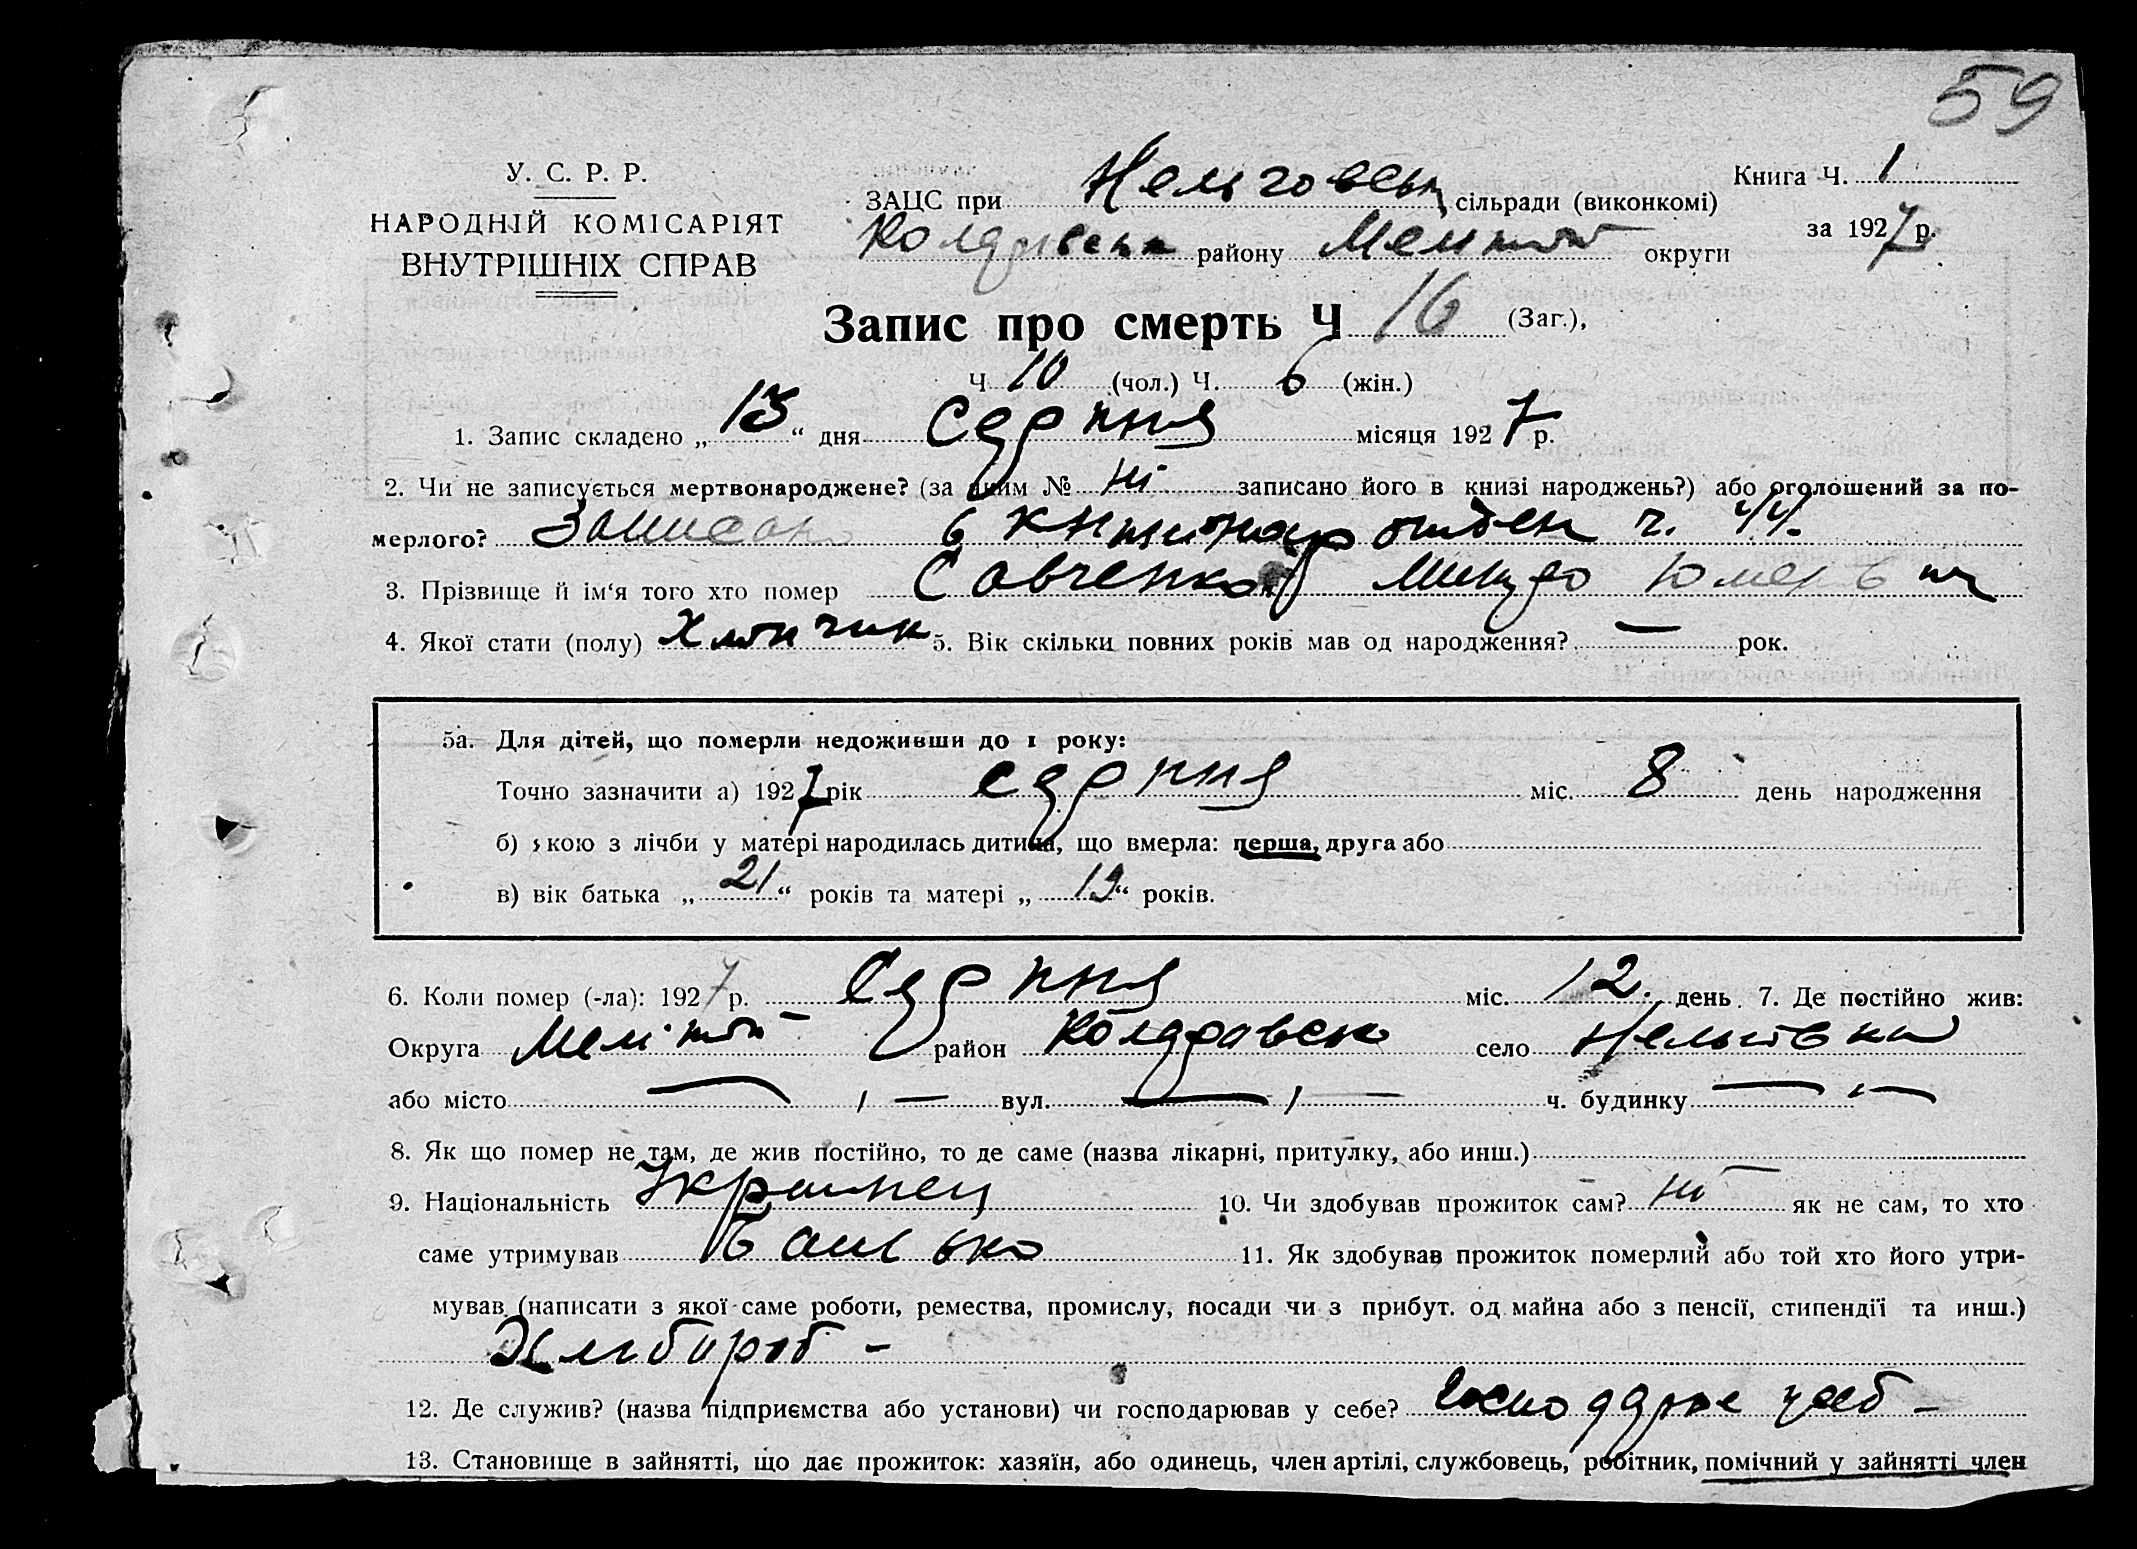 59
У. С. Р. Р.
НАРОДНІЙ КОМІСАРІЯТ
ВНУТРІШНІХ СПРАВ
ЗАЦС при сільради (виконкомі)
району Меліт округи
Книга Ч. 1
за 1927 р.
Запис про смерть Ч 16 (Заг.),
Ч 10 (чол.) Ч. 6 (жін.)
1. Запис складено „ 13 “ дня Серпня місяця 1927 р.
2. Чи не записується мертвонароджене? (за яким № ні записано його в книзі народжень?) або оголошений за по-
мерлого? Записано в ч. 44.
3. Прізвище й ім‘я того хто помер Савченко
4. Якої стати (полу) Хлопчик 5. Вік скільки повних років мав од народження? — рок.
5а. Для дітей, що померли недоживши до 1 року:
Точно зазначити а) 1927 рік серпня міс. 8 день народження
б) якою з лічби у матері народилась дитина, що вмерла: перша, друга або
в) вік батька „ 21 “ років та матері „ 19 “ років.
6. Коли помер (-ла): 1927 р. Серпня міс. 12 день. 7. Де постійно жив:
Округа Меліт район село
або місто — вул. — ч. будинку —
8. Як що помер не там, де жив постійно, то де саме (назва лікарні, притулку, або инш.) —
9. Національність Украинец 10. Чи здобував прожиток сам? ні як не сам, то хто
саме утримував Батько 11. Як здобував прожиток померлий або той хто його утри-
мував (написати з якої саме роботи, ремества, промислу, посади чи з прибут. од майна або з пенсії, стипендії та инш.)
Хлібороб -
12. Де служив? (назва підприємства або установи) чи господарював у себе?
13. Становище в зайнятті, що дає прожиток: хазяїн, або одинець, член артілі, службовець, робітник, помічний у зайнятті член